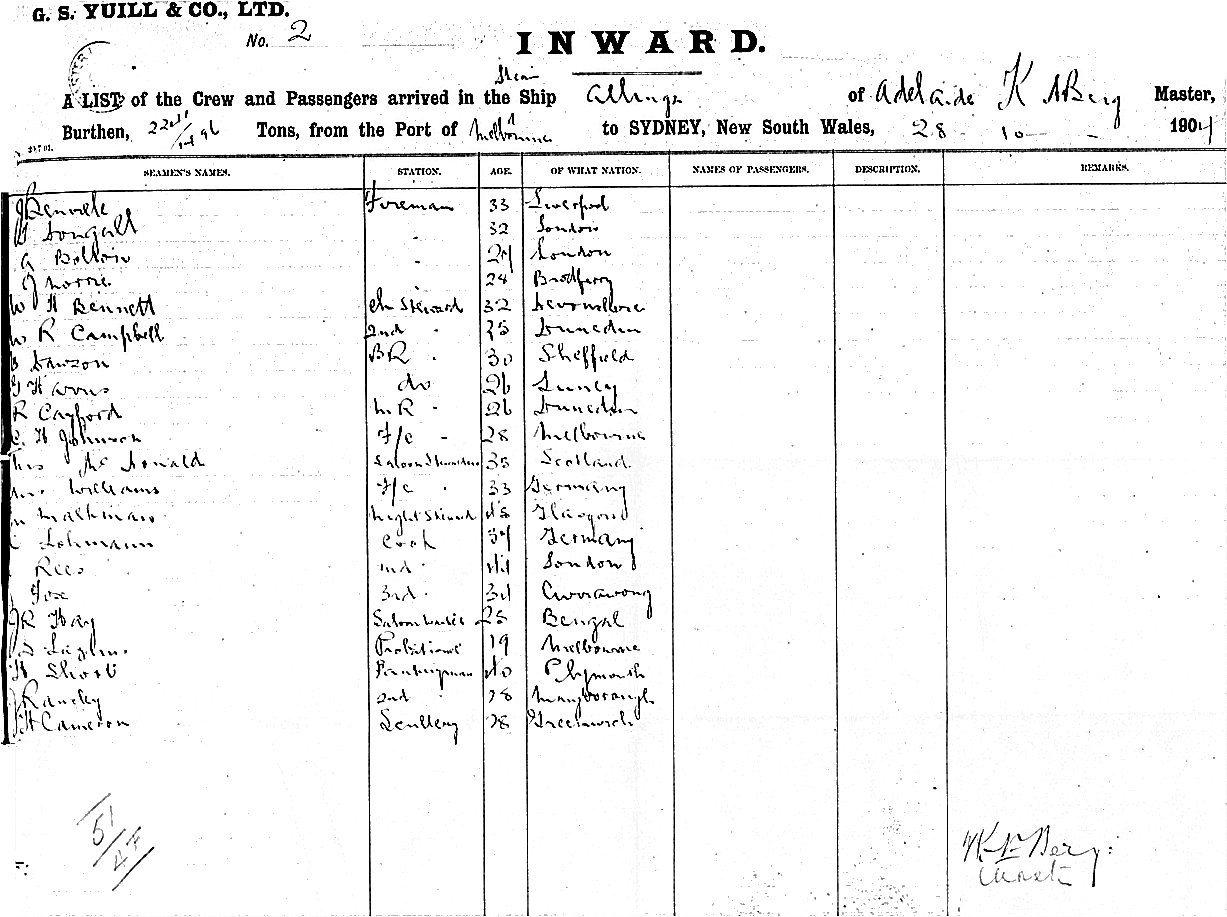 G. S. YUILL & CO., LTD.
No. 2
INWARD.
A LIST of the Crew and Passengers arrived in the Ship Steam Allinga of Adelaide K Berg Master,
Burthen, Tons, from the Port of Melbourne to SYDNEY, New South Wales, 28 - 10 - 1904
SEAMEN'S NAMES. STATION. AGE. OF WHAT NATION. NAMES OF PASSENGERS. DESCRIPTION. REMARKS.
J Foreman 33 Liverpool
Dougall " 32 London
G " London
J Norrie 24
W H Bennett Ch Steward 32 Devonshire
W R Campbell 2nd " 35 Dunedin
Dawson BR " 30 Sheffield
do 26
R Cayford MR " 26 Dunedin
C. H Johnson F/c - 28 Melbourne
Mrs Mc Donald Saloon Stewardess 35 Scotland
Mrs Williams F/c " 33 Germany
Night Steward 45 Glasgow
Lehmann Cook 37 Germany
Rees 2nd " 44 London
Fox 3rd " 34
J R Hay Saloon Waiter 25 Bengal
19 Melbourne
H Short Pantryman 40 Plymouth
J 2nd " 28 Maryborough
H Cameron Scullery 28 Greenwich
51/47
K Berg